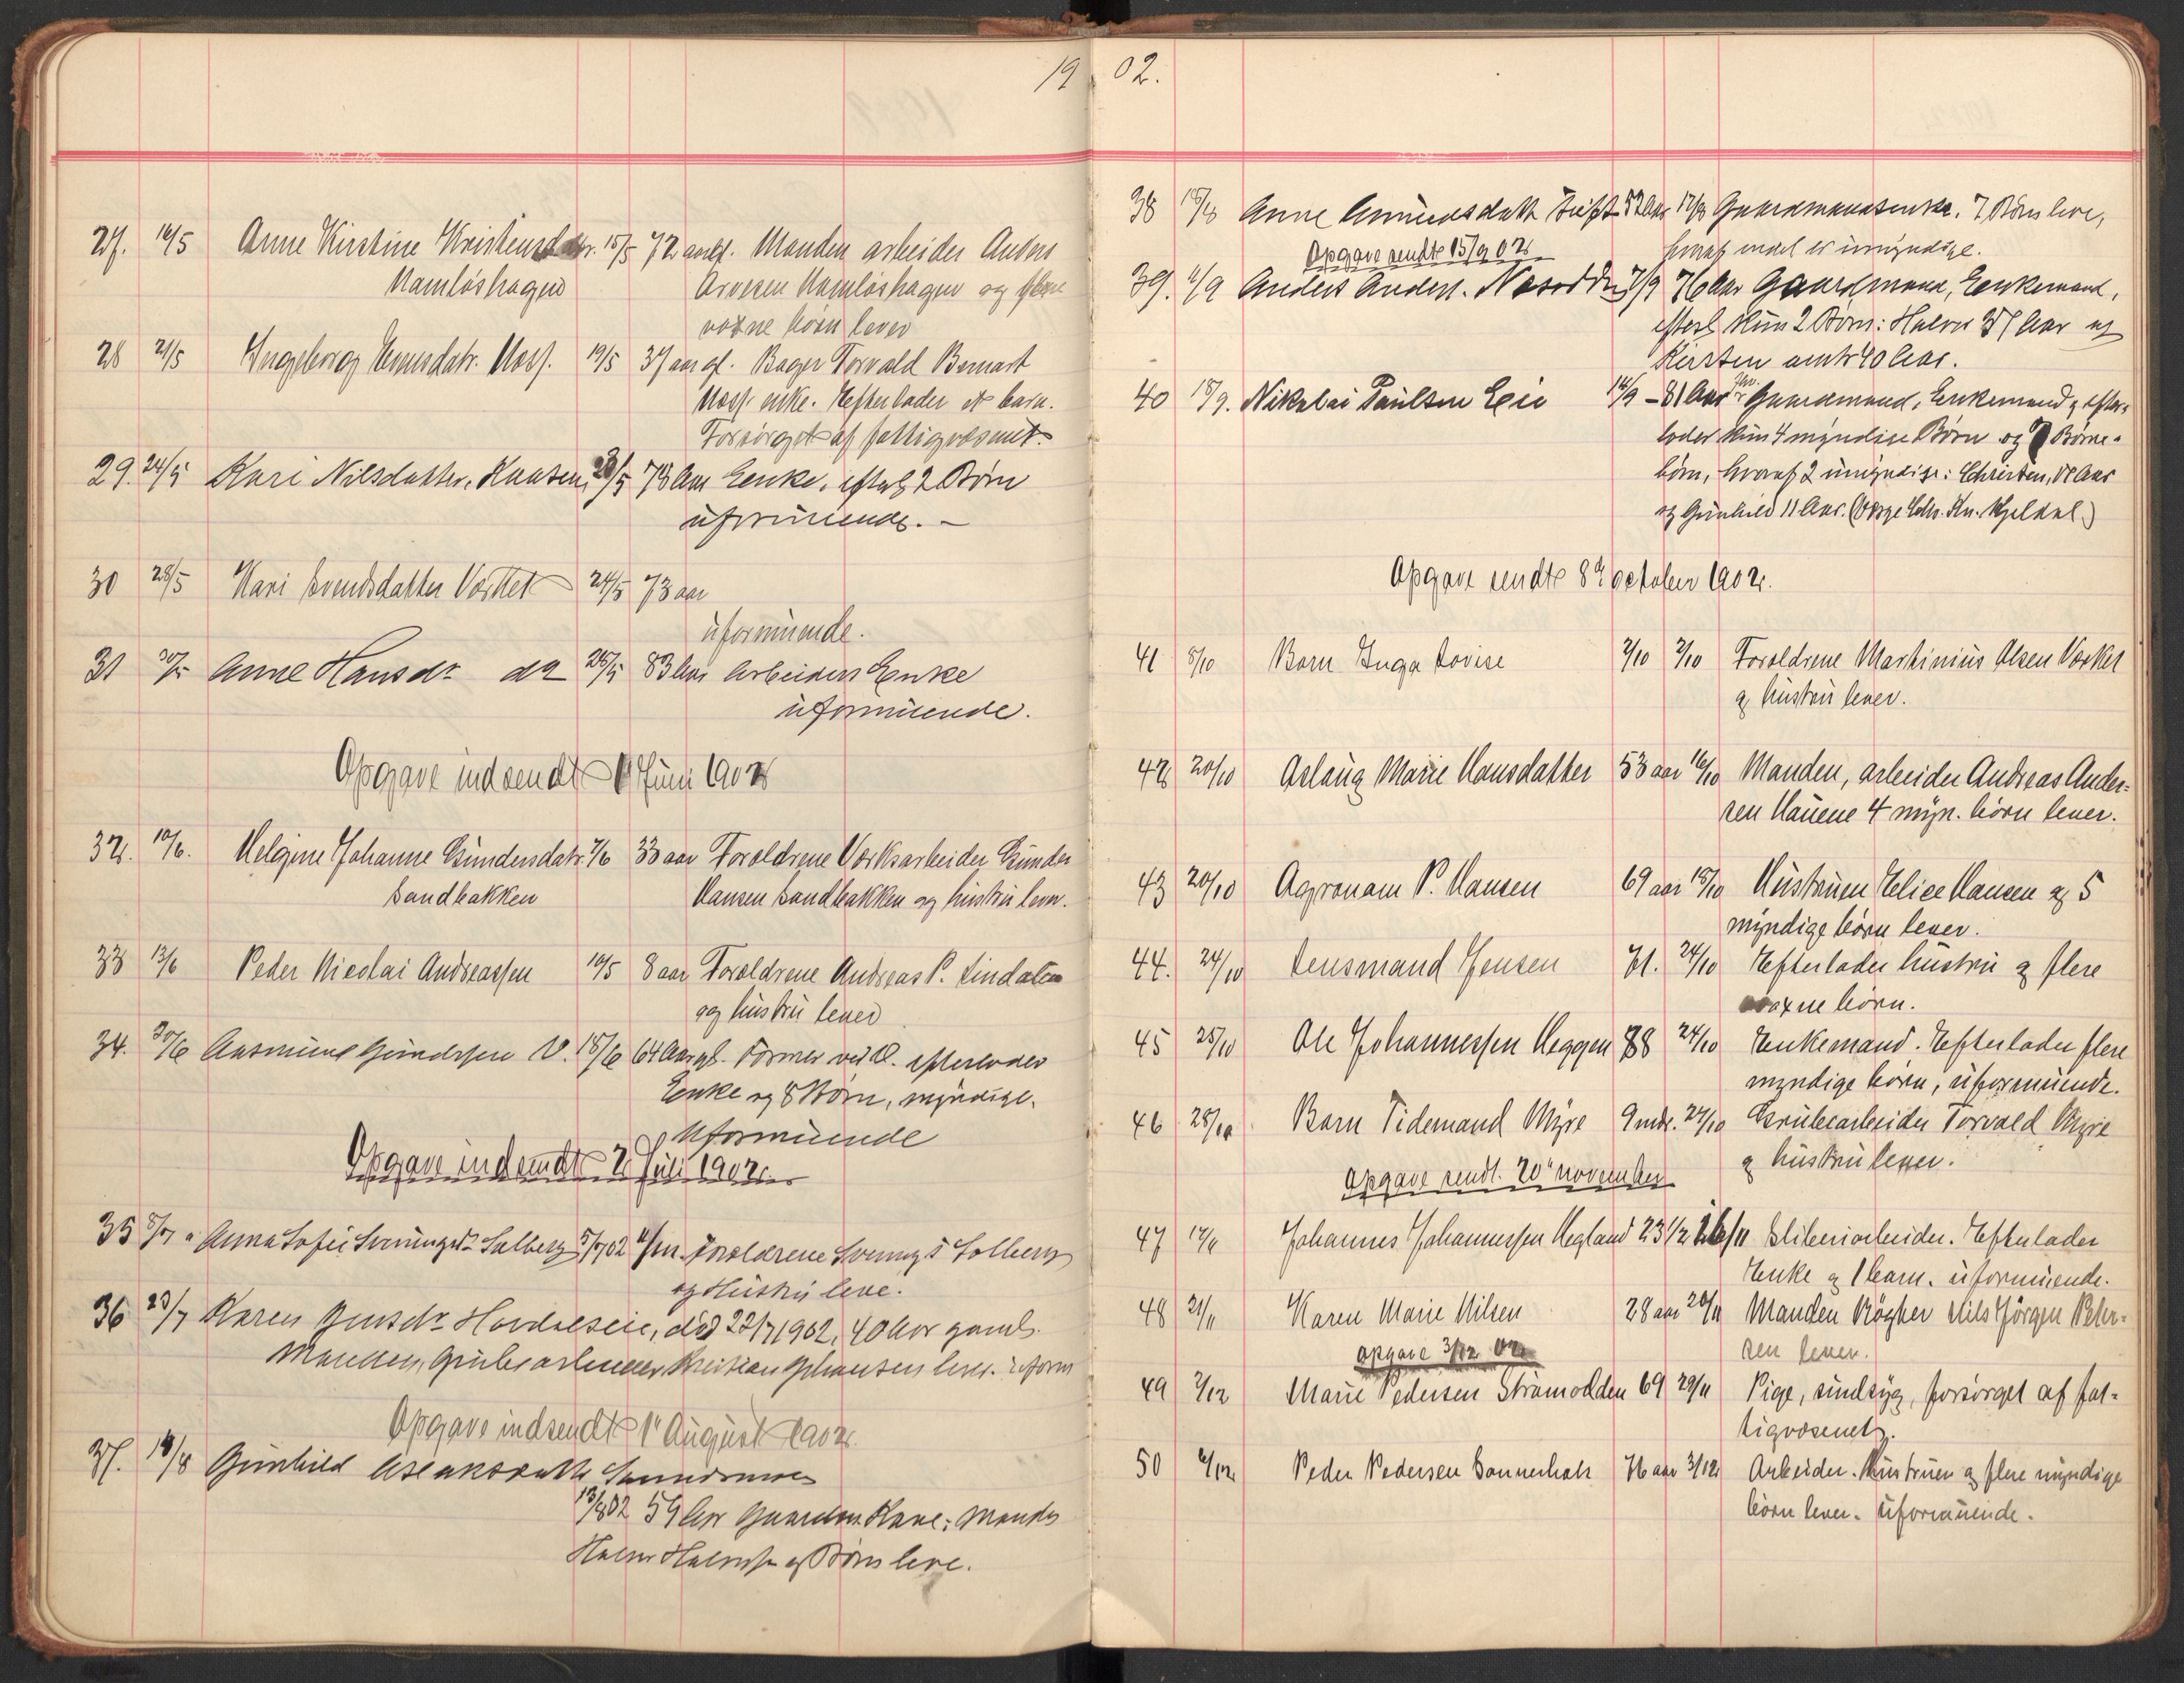 1902.
27. 16/5 Anne Kirstine Kristensdatr. 15/5 72 aar gl. Manden arbeider Anders
Namløshagen Arvesen Namløshagen og flere
voxne børn lever
28 21/5 Ingeborg Evensdatr. Moss. 19/5 37 aar gl. Bager Torvald Bernart
Moss' enke. Efterlader et barn.
Forsørget af fattigvæsenet.
29. 24/5 Kari Nilsdatter, Knatten, 20/5 78 Aar Enke, efterl. 2 Børn
uformuende. -
30 28/5 Kari Svendsdatter Værket 24/5 73 aar
uformuende.
31 30/5 Anne Hansdr do 28/5 83 Aar Arbeiders Enke
uformuende.
Opgave indsendt Juni 1902
32. 10/6. Helgine Johanne Gundersdatr. 7/6 33 aar Forældrene Værksarbeider Gunder
Sandbakken Hansen Sandbakken og hustru lever.
33 13/6 Peder Nicolai Andreassen 10/5 8 aar Forældrene Andreas P. Lindalen
og hustru lever
34. 20/6 Aasmund Gundersen V. 18/6 64 Aar gl. Former ved V. efterlader
Enke og 8 Børn, myndige.
Uformuende
Opgave indsendt 2 Juli 1902.
35 8/7 Anna Sofie Sveningsdr Solberg 5/7 02 Forældrene Svenning S Solberg
og Hustru leve.
36 23/7 Karen Jensdr Hovdalseie, død 22/7 1902, 40 Aar gaml.
Manden, Grubearbeider Kristian Johansen lever. uform
Opgave indsendt 1ste August 1902.
37. 14/8 Gunhild Aslaksdatter
13/8 02 59 Aar Gaardm. Kone; Manden
Halvor Halvorsen og Børn leve.
38 18/8 Anne Amundsdatter Tveft Aar 17/8 Gaardmandsenke. 7 Børn leve,
Opgave sendt 15/9 02 hvoraf ingen er umyndige.
39. 9/9 Anders Anders. Nesodden 7/9 76 Aar Gaardmand, Enkemand,
efterl. kun 2 Børn: Halvor 37 Aar og
Kirsten omtr 40 Aar.
40 18/9. Nikolai Paulsen Eie 14/9 - 81 Aar Gaardmand, Enkemand, efter-
lader kun 4 myndige Børn og Børne-
børn, hvoraf 2 umyndige: Christen, Aar
og Gunhild 11 Aar. (Værge Chr. Kn. Kjeldal.)
Opgave sendt 8de october 1902.
41 8/10 Barn Inga Lovise 2/10 2/10 Forældrene Martinius Olsen Værket
og hustru lever.
42 20/10 Aslaug Marie Hansdatter 53 aar 16/10 Manden, arbeider Andreas Ander-
sen Hauene 4 myn. børn lever.
43 20/10 Agronom P. Hansen 69 aar 18/10 Hustruen Elice Hansen og 5
myndige børn lever.
44. 24/10 Lensmand Jensen 71. 24/10 Efterlader hustru og flere
voxne børn.
45 25/10 Ole Johannessen Heggen 88 24/10 Enkemand. Efterlader flere
myndige børn, uformuende.
46 28/10 Barn Tidemand Myre 9 mdr. 27/10 Grubearbeider Torvald Myre
og hustru lever.
Opgave sendt. 20de november
47 17/11 Johannes Johannessen Hegland 23 1/2 16/11 Sliberiarbeider. Efterlader
Enke og 1 barn. uformuende.
48 21/11 Karen Marie Nilsen 28 aar 20/11 Manden Røgter Nils Jørgen Peter-
sen lever.
opgave 3/12 02
49 2/12 Marie Pedersen Strømodden 69 29/11 Pige, sindsyg, forsørget af fat-
tigvæsenet.
50 6/12 Peder Pedersen Sonnerholt 76 aar 3/12 Arbeider. Hustruen og flere myndige
børn lever. Uformuende.